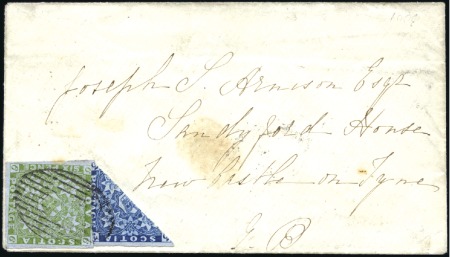 Joseph S. Arnison Esqr
Sandyford House
New Castle on Tyne
G. B
SCOTIA
SCOTIA